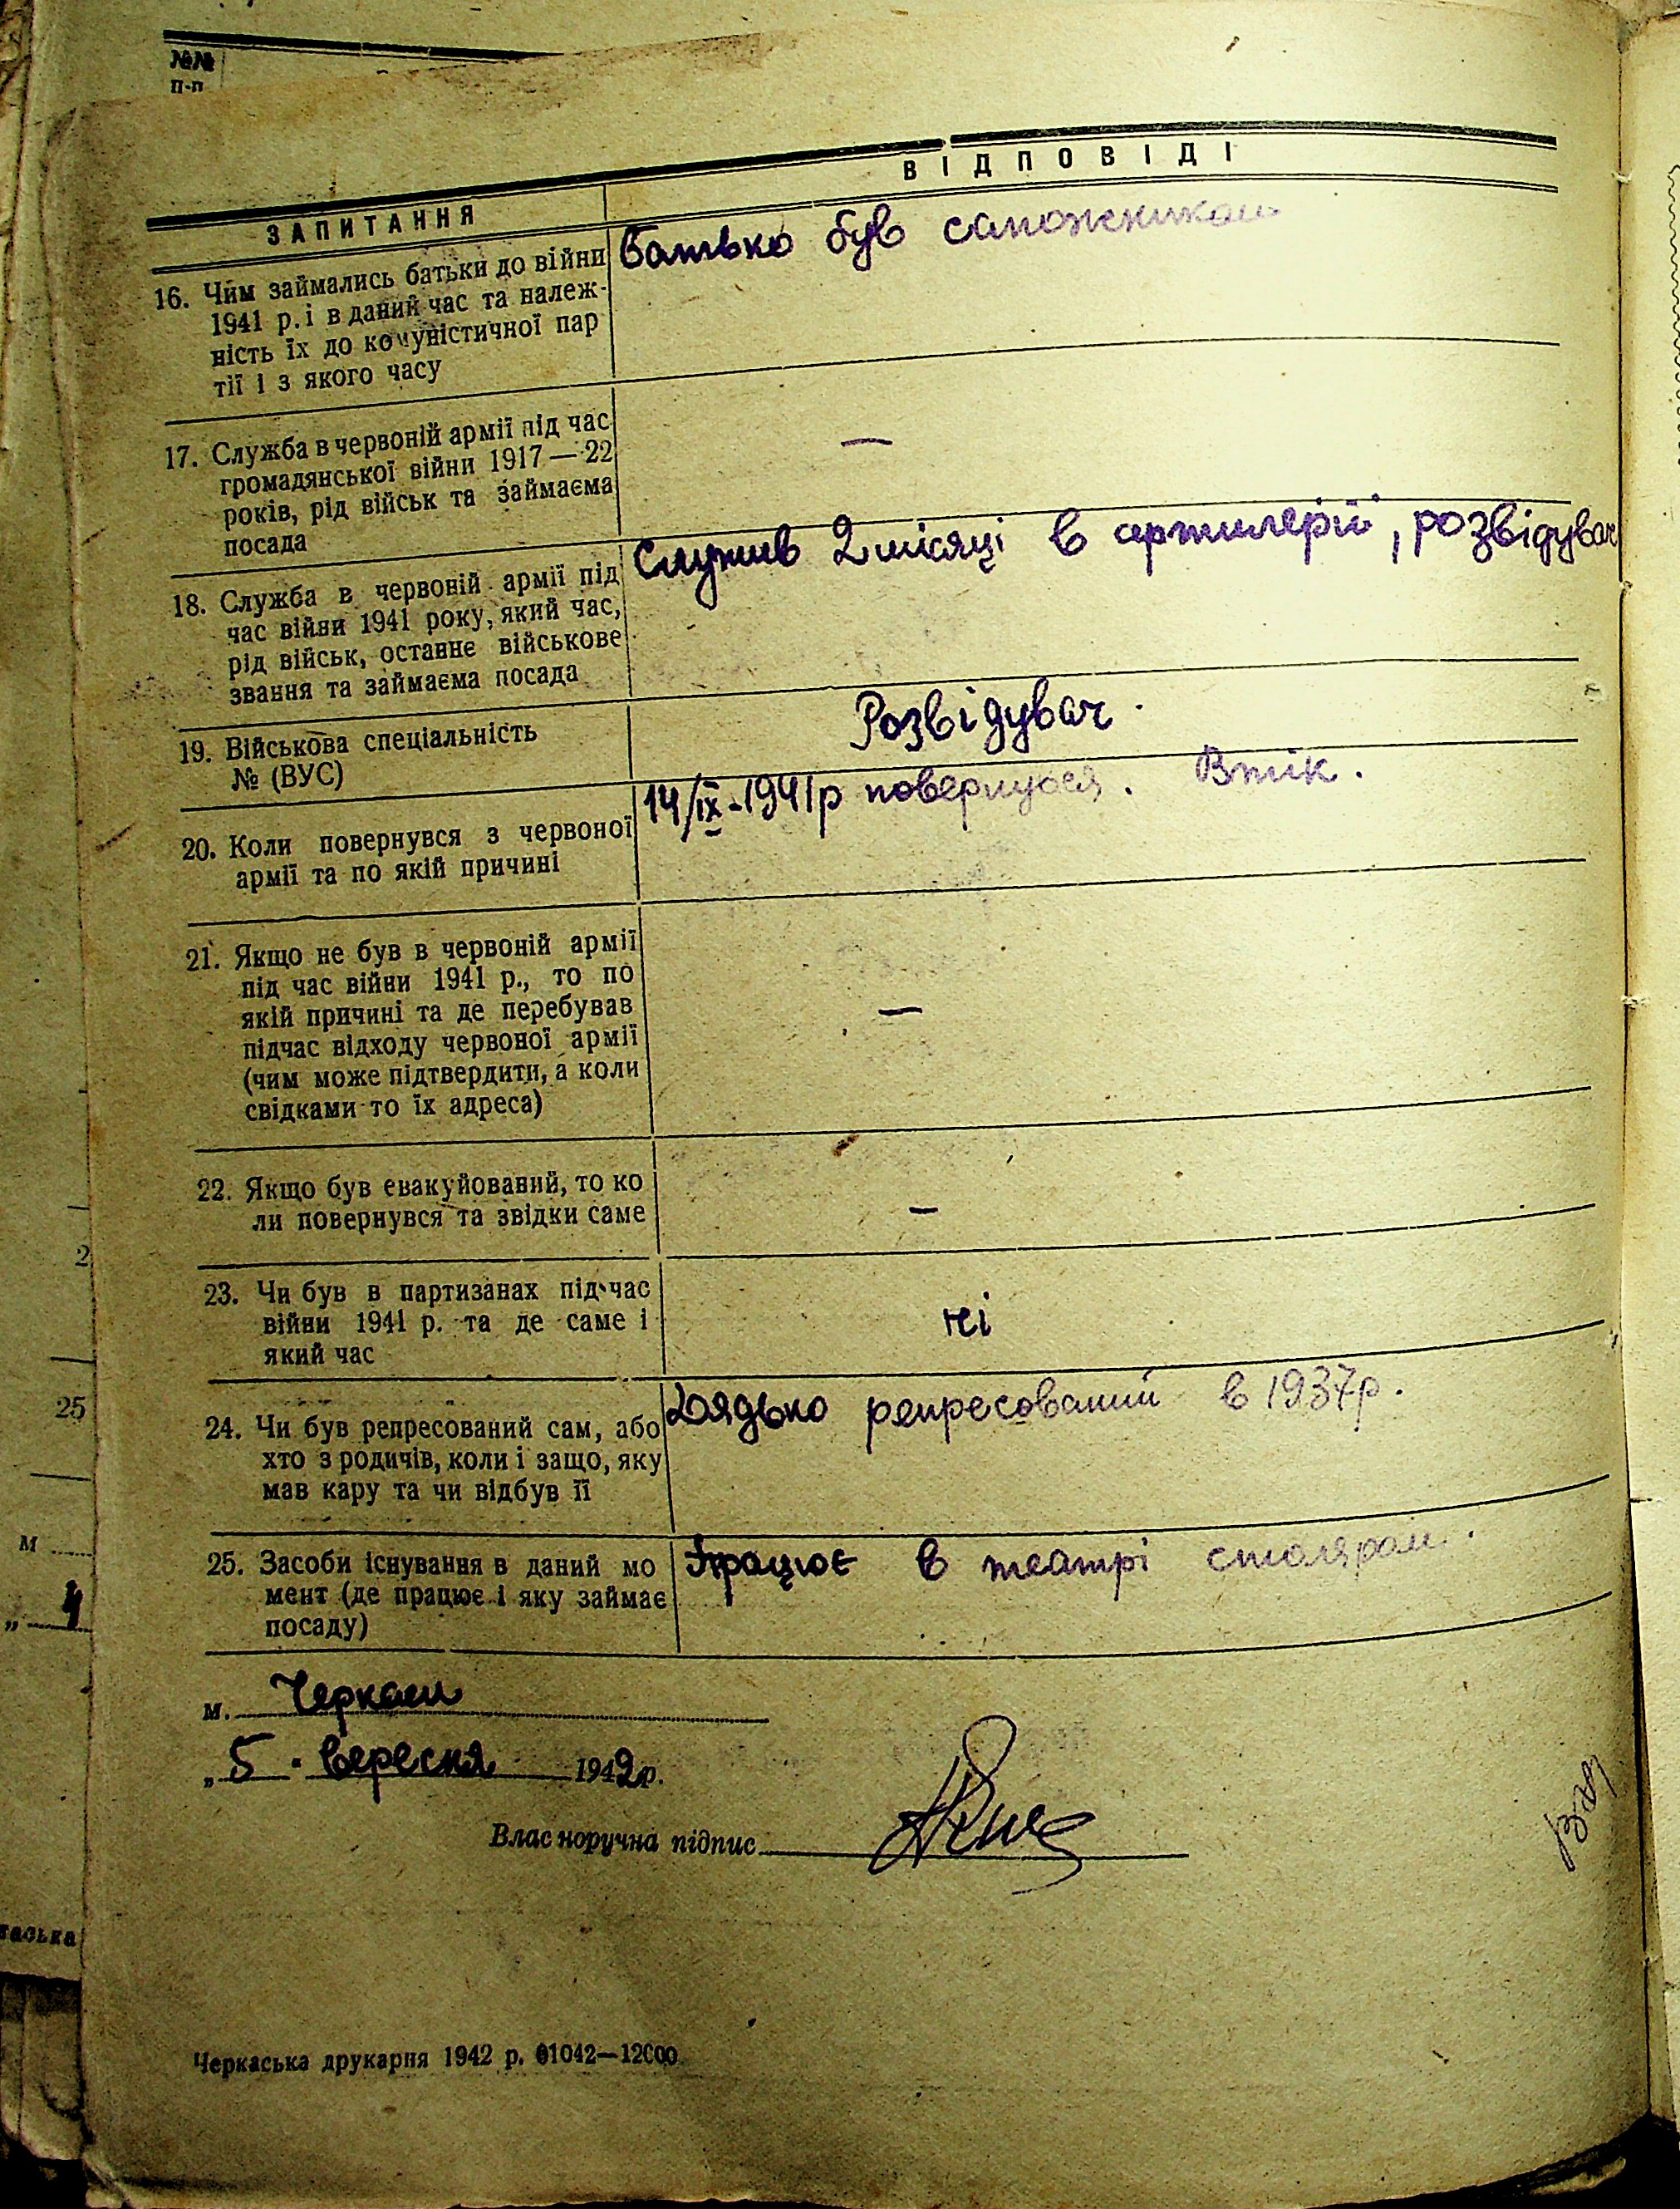 №№
п-п
ЗАПИТАННЯ
ВІДПОВІДІ
16. Чим займались батьки до війни
1941 р. і в даний час та належ-
ність їх до комуністичної пар
тії і з якого часу
Батько був сапожником
17. Служба в червоній армії під час
громадянської війни 1917—22
років, рід військ та займаєма
посада
—
18. Служба в червоній армії під
час війни 1941 року, який час,
рід військ, останнє військове
звання та займаєма посада
Служив 2 місяці в артилерії, розвідувач
19. Військова спеціальність
№ (ВУС)
Розвідувач.
20. Коли повернувся з червоної
армії та по якій причині
14/ІХ-1941р повернувся. Втік.
21. Якщо не був в червоній армії
під час війни 1941 р., то по
якій причині та де перебував
підчас відходу червоної армії
(чим може підтвердити, а коли
свідками то їх адреса)
—
22. Якщо був евакуйований, то ко
ли повернувся та звідки саме
—
23. Чи був в партизанах під час
війни 1941 р. та де саме і
який час
ні
24. Чи був репресований сам, або
хто з родичів, коли і защо, яку
мав кару та чи відбув її
Дядько репресований в 1937р.
25. Засоби існування в даний мо
мент (де працює і яку займає
посаду)
Працює в театрі столяром.
м. Черкаси
„5. вересня 1942р.
Власноручна підпис
Черкаська друкарня 1942 р. 01042—12000
2
25
м
„ 4
ська